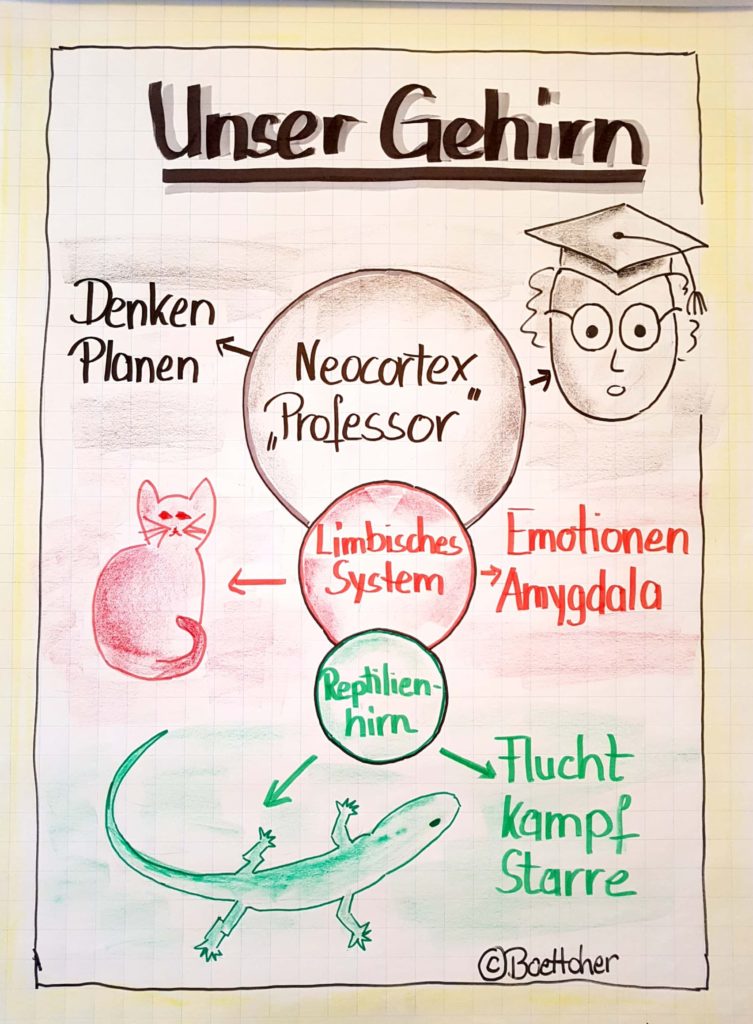 Unser Gehirn
Denken
Planen
Neocortex
„Professor"
Limbisches
System
Emotionen
Amygdala
Reptilien-
hirn
Flucht
Kampf
Starre
©.Boettcher